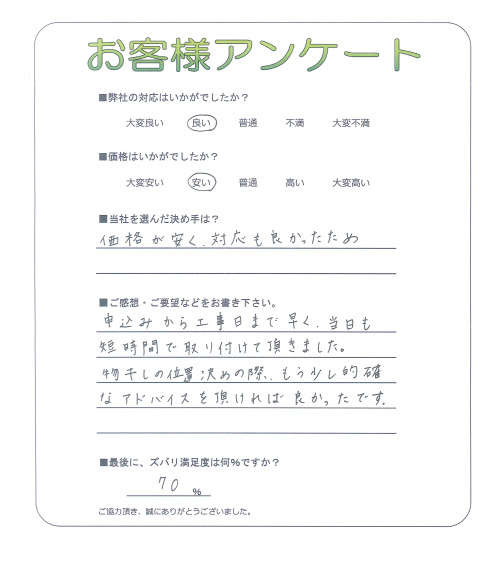 お客様アンケート
■弊社の対応はいかがでしたか？
大変良い 良い 普通 不満 大変不満
■価格はいかがでしたか？
大変安い 安い 普通 高い 大変高い
■当社を選んだ決め手は？
価格が安く、対応も良かったため
■ご感想・ご要望などをお書き下さい。
申込みから工事日まで早く、当日も
短時間で取り付けて頂きました。
物干しの位置決めの際、もう少し的確
なアドバイスを頂ければ良かったです。
■最後に、ズバリ満足度は何％ですか？
70 %
ご協力頂き、誠にありがとうございました。